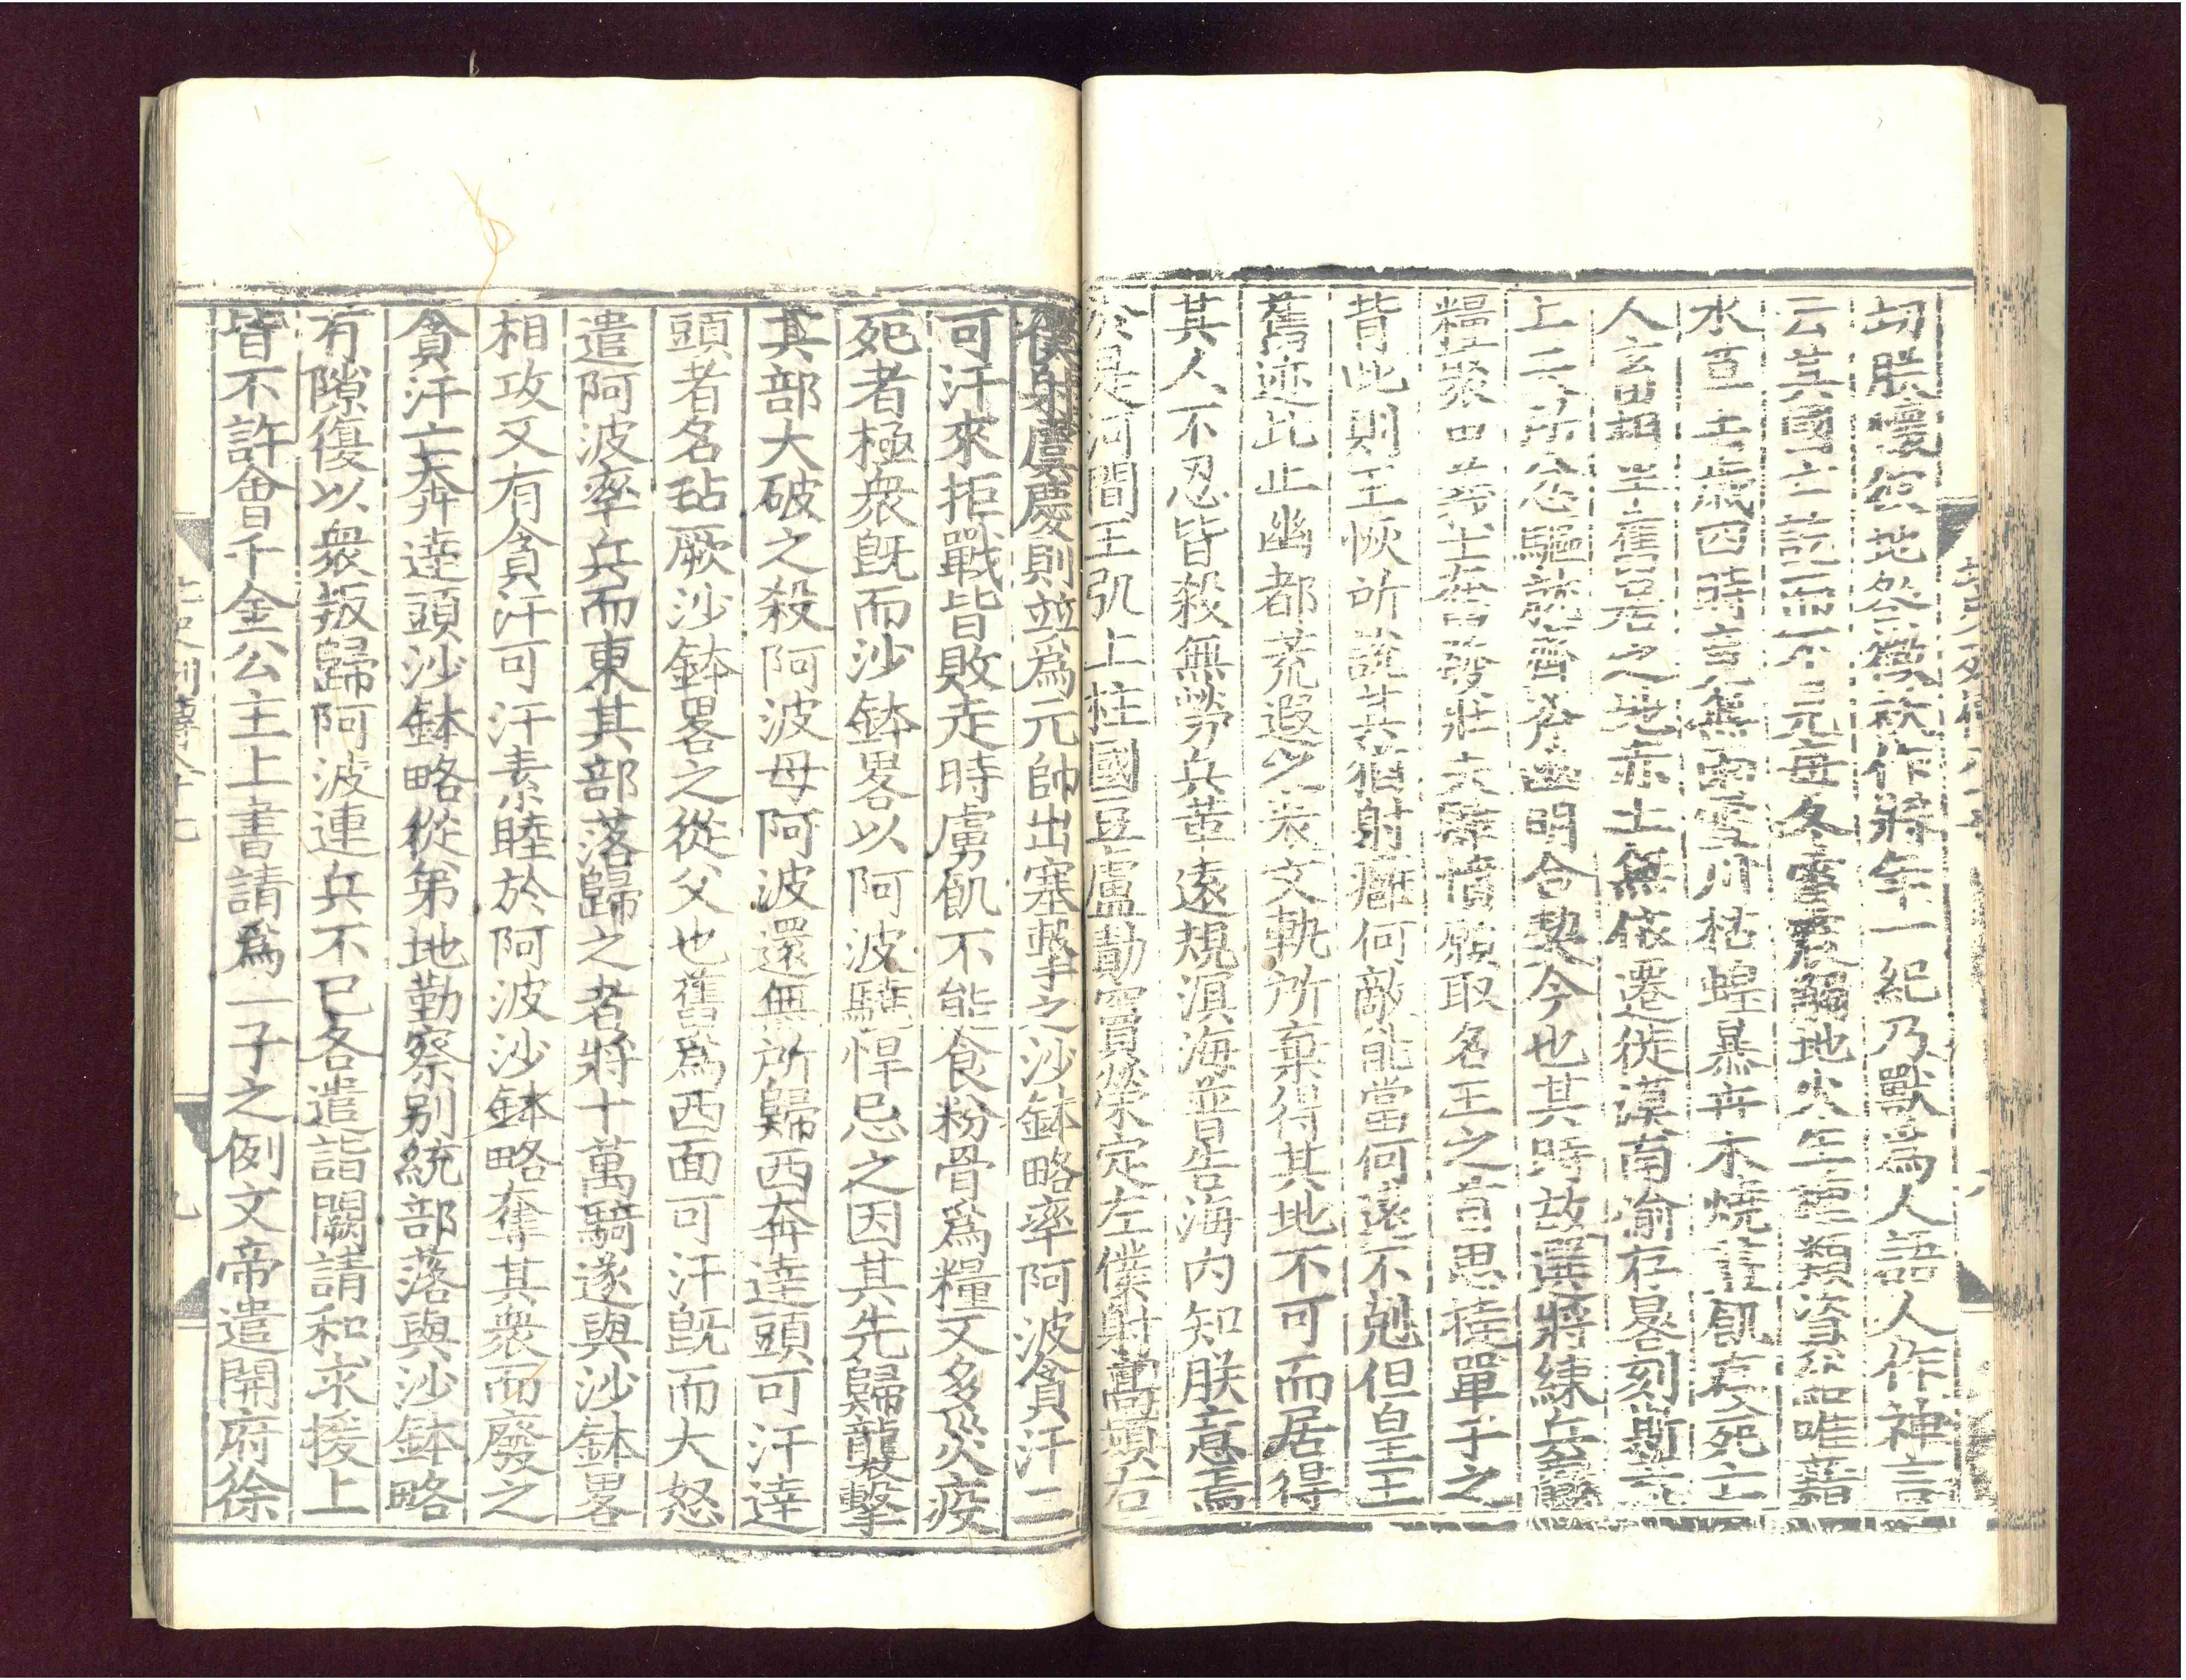 切朕懷彼地咎徵祅作將年一紀乃獸爲人語人作神言
云其國亡訖而不見每冬雷震觸地火生種類資給唯藉
水草去歲四時竟無雨雪川枯蝗暴卉木燒盡飢疫死亡
人畜相半舊居之地赤土無依遷徙漠南偷存晷刻斯蓋
上天所忿驅就齊斧幽明合契今也其時故選將練兵贏
糧聚甲義士奮發壯夫肆憤願取名王之首思撻單于之
背此則王恢所說其猶射癰何敵能當何遠不剋但皇王
舊迹北止幽都荒遐之表文軌所棄得其地不可而居得
其人不忍皆殺無勞兵革遠規溟海普告海內知朕意焉
於是河閒王弘上柱國豆盧勣竇榮定左僕射高熲右
僕射虞慶則並爲元帥出塞擊之沙鉢略率阿波貪汗二
可汗來拒戰皆敗走時虜飢不能食粉骨爲糧又多災疫
死者極衆旣而沙鉢畧以阿波驍悍忌之因其先歸襲擊
其部大破之殺阿波母阿波還無所歸西奔逹頭可汗逹
頭者名玷厥沙鉢畧之從父也舊爲西面可汗旣而大怒
遣阿波率兵而東其部落歸之者將十萬騎遂與沙鉢畧
相攻又有貪汗可汗素睦於阿波沙鉢略奪其衆而廢之
貪汗亡奔逹頭沙鉢略從弟地勤察别統部落與沙鉢略
有隙復以衆叛歸阿波連兵不已各遣詣闕請和求援上
皆不許會千金公主上書請爲一子之例文帝遣開府徐